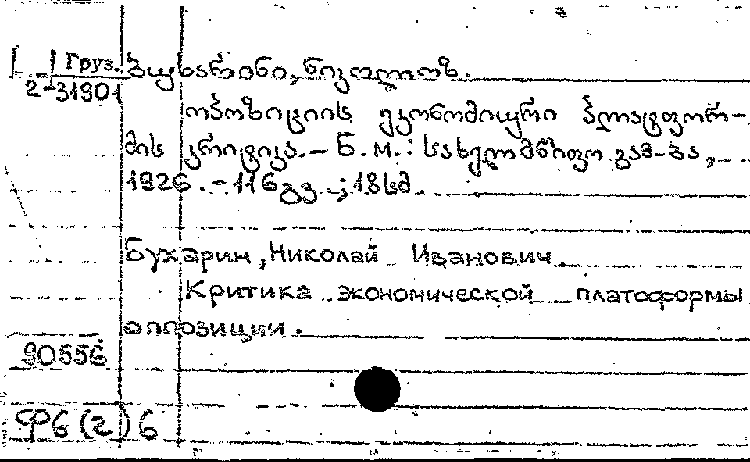 Груз. ბუხარინი, ნიკოლოზ.
2-31901
ოპოზიციის ეკონომიური პლატფორ-
მის კრიტიკა. – Б. м.: სახელმწიფო გამ-ბა,
1926. – 116 გვ.; 18 სმ.
Бухарин, Николай Иванович.
Критика экономической платформы
оппозиции.
90556
Ф6(2)6